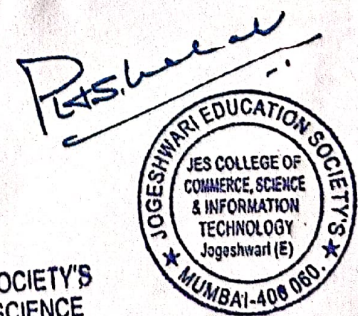 JOGESHWARI EDUCATION SOCIETY'S
JES COLLEGE OF
COMMERCE, SCIENCE
& INFORMATION
TECHNOLOGY
Jogeshwari (E)
★ MUMBAI-400 060. ★
OCIETY'S
SCIENCE